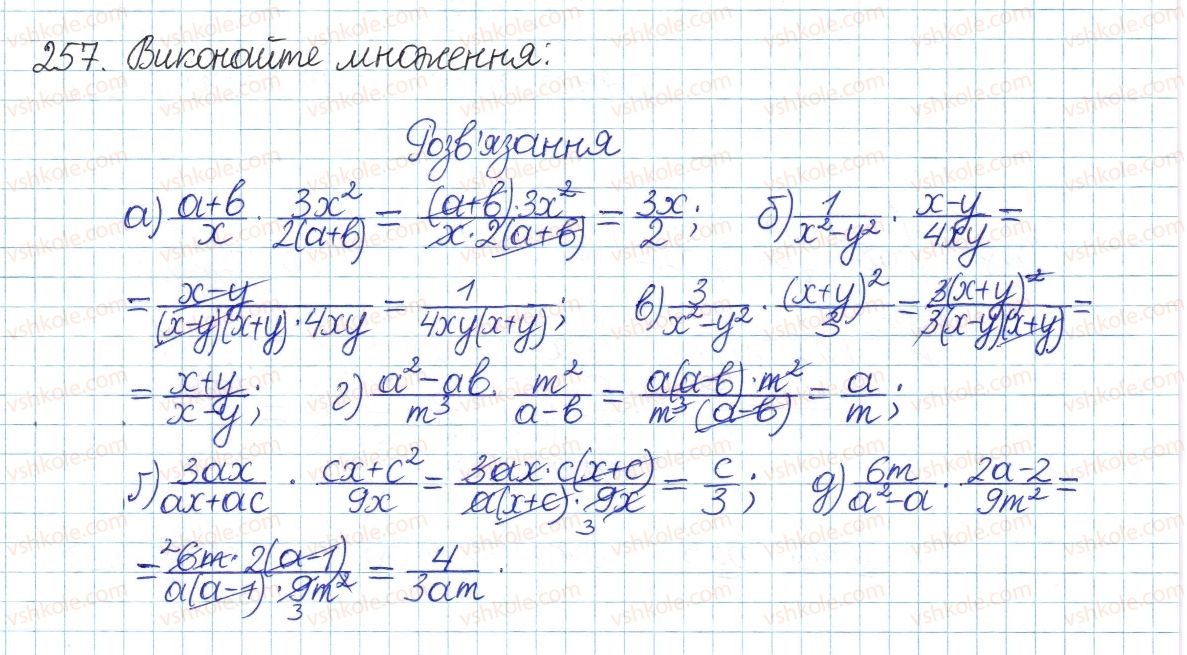 257. Виконайте множення:
Розв'язання
а) (a+b)/x · 3x²/(2(a+b)) = ((a+b)·3x²)/(x·2(a+b)) = 3x/2; б) 1/(x²-y²) · (x-y)/(4xy) =
= (x-y)/((x-y)(x+y)·4xy) = 1/(4xy(x+y)); в) 3/(x²-y²) · (x+y)²/3 = 3(x+y)²/(3(x-y)(x+y)) =
= (x+y)/(x-y); г) (a²-ab)/m³ · m²/(a-b) = (a(a-b)·m²)/(m³(a-b)) = a/m;
ґ) 3ax/(ax+ac) · (cx+c²)/(9x) = (3ax·c(x+c))/(a(x+c)·9x) = c/3; д) 6m/(a²-a) · (2a-2)/(9m²) =
3
= (6m·2(a-1))/(a(a-1)·9m²) = 4/(3am).
2
3